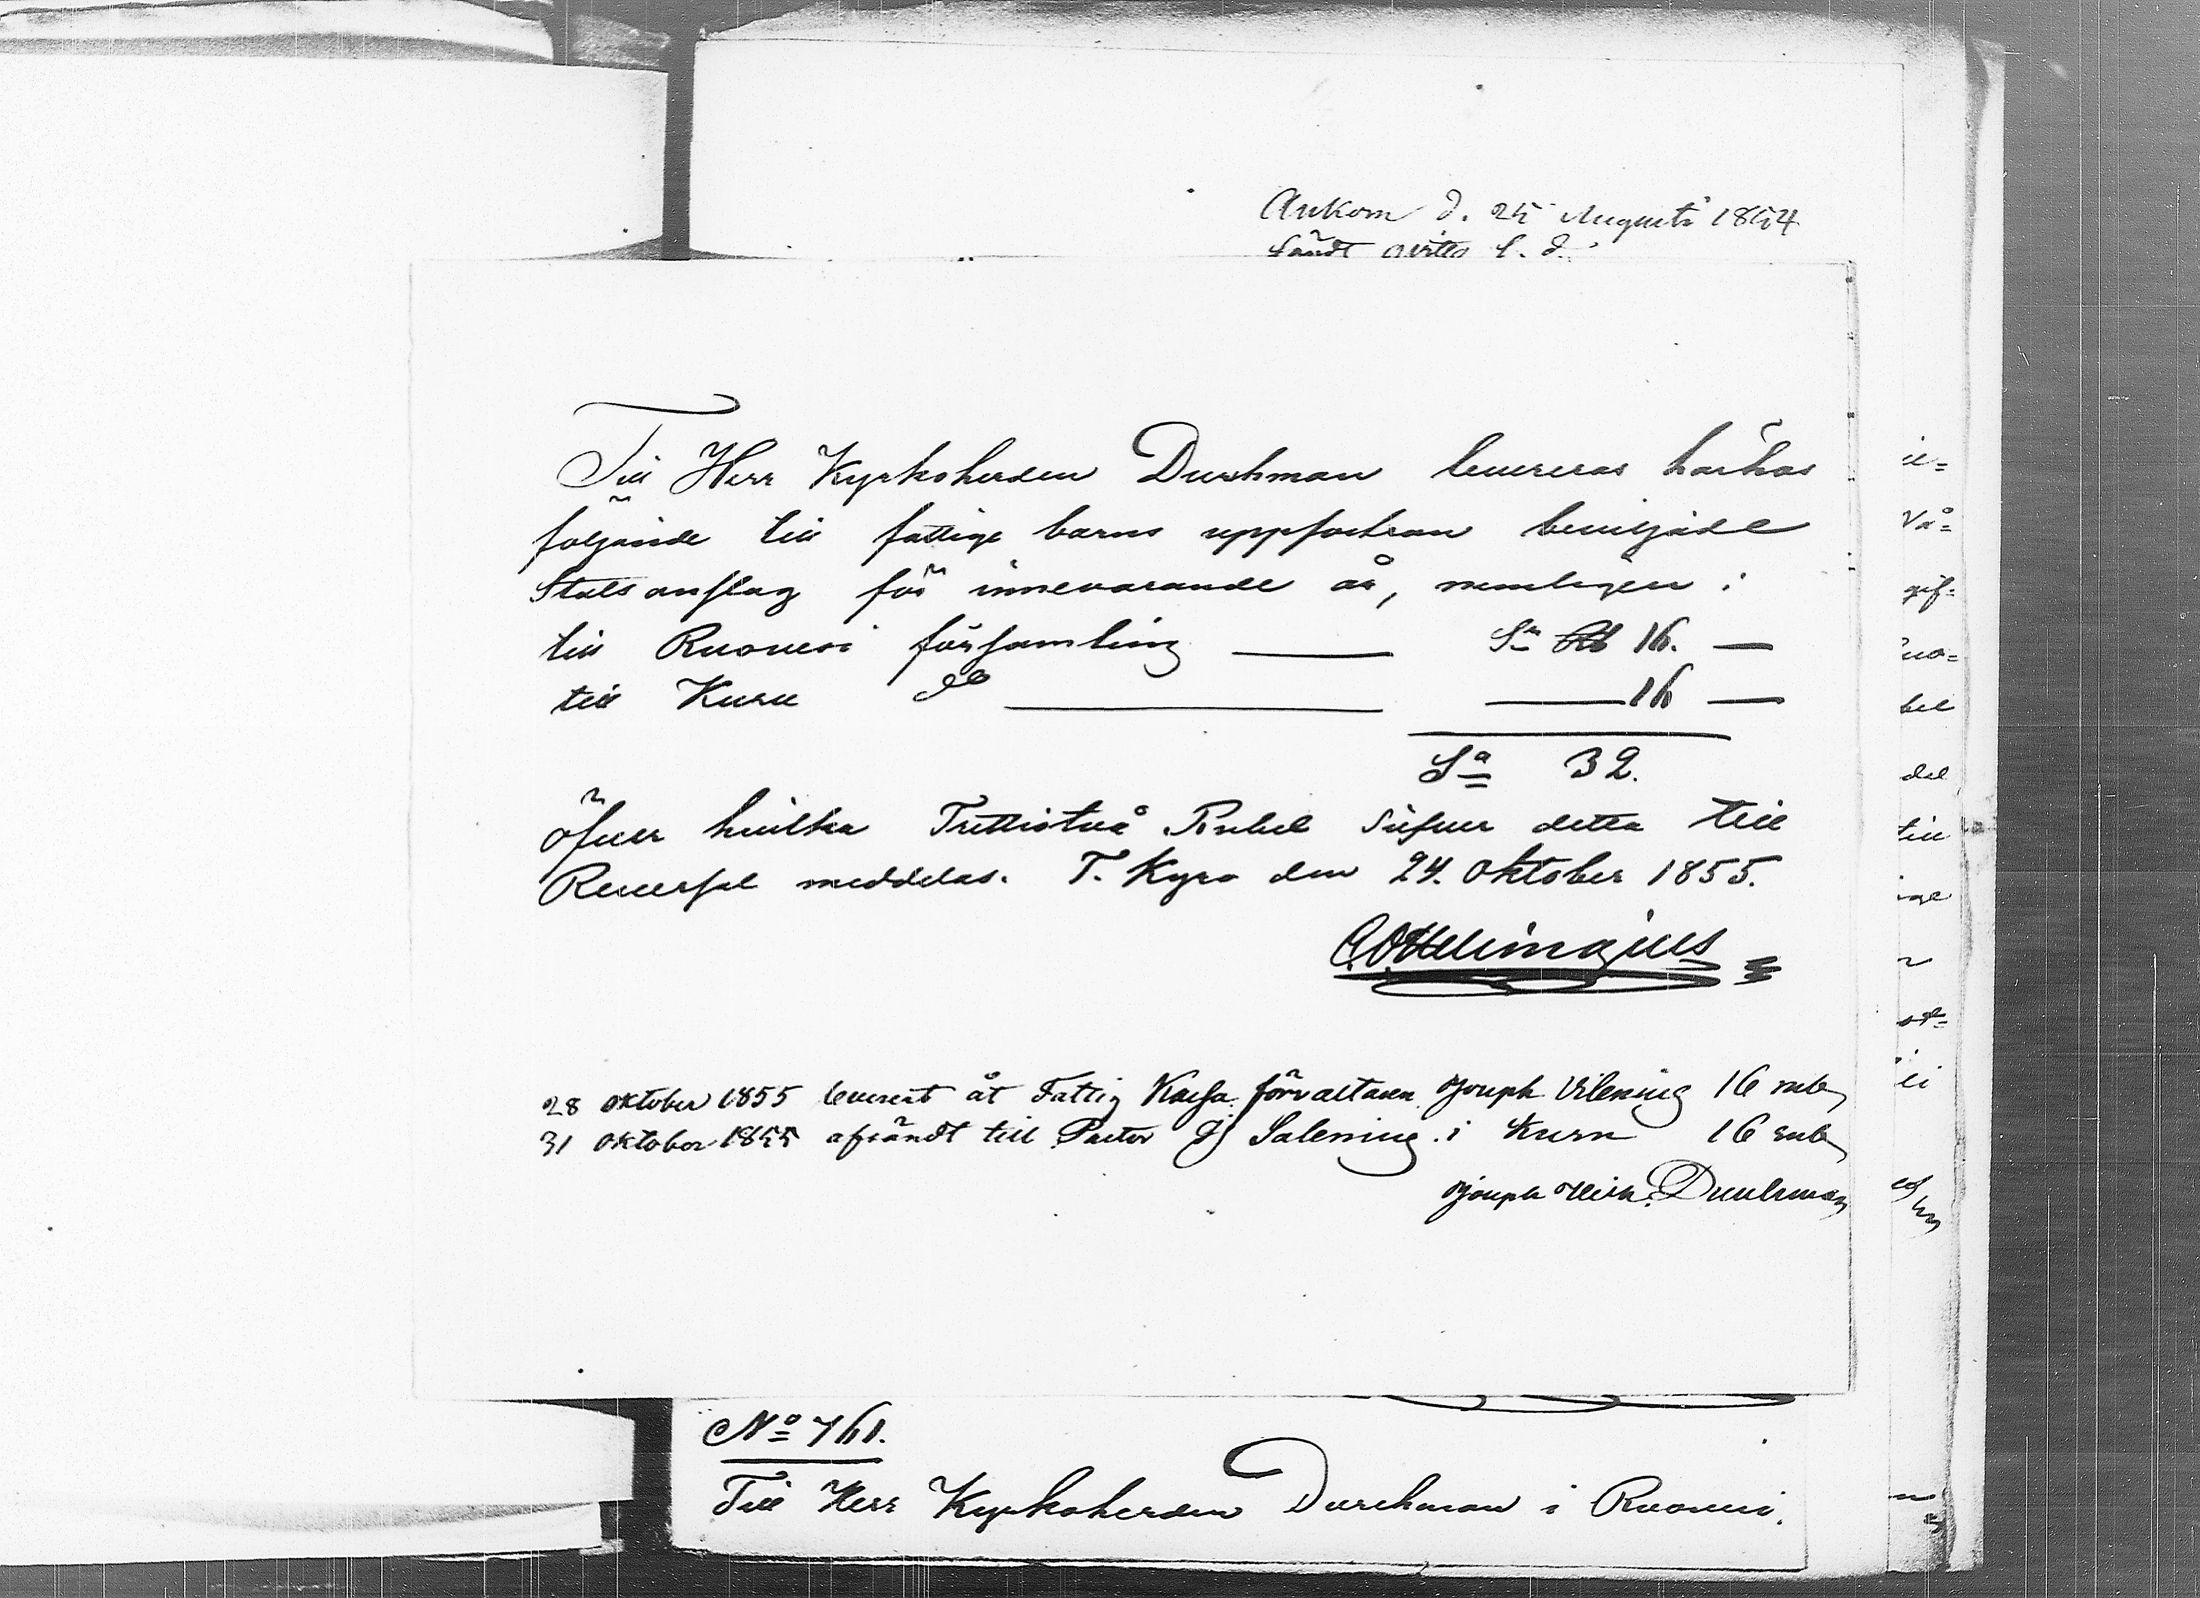 Ankom d. 25 Augusti 1854
sändt
Till Herr Kyrkoherden Durchman levereras härhos
följande till fattige barns uppfostran beviljade
Statsanslag för innevarande år, nemligen:
till Ruovesi församling — Sr Rb 16. —
till Kuru do — — 16 —
Sa 32.
öfver hvilka Trettiotvå Rubel Silfver detta till
Reversal meddelas. T. Kyro den 24. Oktober 1855.
28 Oktober 1855 leverert åt Fattig Kassa förvaltaren Joseph Vilenius 16 rub
31 Oktober 1855 afsändt till Pastor Salenius i Kuru 16 rub
Joseph Hein. Durchman
No 761.
Till Herr Kyrkoherden Durchman i Ruovesi.
ie=
Vå=
gif=
uo=
bel
del
till
ige